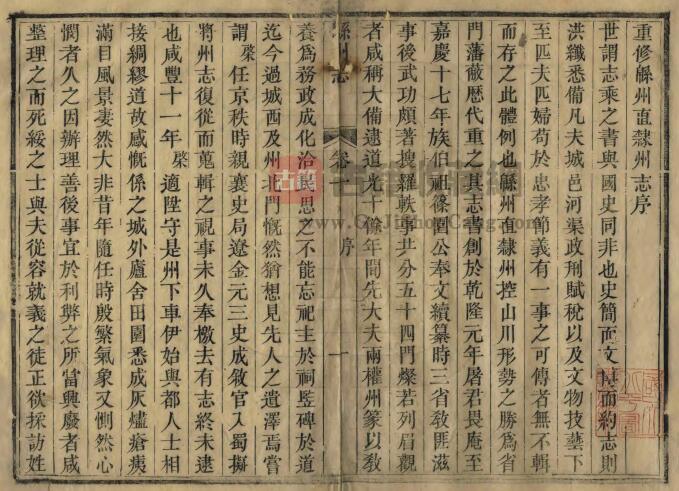 重修緜州直隸州志序
世謂志乘之書與國史同非也史簡而文
而約志則
洪纖悉備凡夫城邑河渠政刑賦稅以及文物技藝下
至匹夫匹婦苟於忠孝節義有一事之可傳者無不輯
而存之此體例也緜州直隸州控山川形勢之勝爲省
門藩蔽歴代重之其志書創於乾隆元年屠君畏庵至
嘉慶十七年族伯祖篠園公奉文續纂時三省敎匪滋
事後武功頗著搜羅軼事共分五十四門燦若列眉觀
者咸稱大備逮道光十餘年間先大夫兩權州篆以敎
緜州志
卷一
序
一
養爲務政成化洽民思之不能忘祀主於祠竪碑於道
迄今過城西及州北門慨然猶想見先人之遺澤焉嘗
謂棨任京秩時親襄史局遼金元三史成敘官入蜀擬
將州志復從而蒐輯之視事未久奉檄去有志終未逮
也咸豐十一年棨適陞守是州下車伊始與都人士相
接綢繆道故感慨係之城外廬舍田園悉成灰燼瘡痍
滿目風景凄然大非昔年隨任時殷繁氣象又惻然心
憫者久之因辦理善後事宜於利弊之所當興廢者咸
整理之而死綏之士與夫從容就義之徒正欲採訪姓
古籍
GuJiShuCang.Com